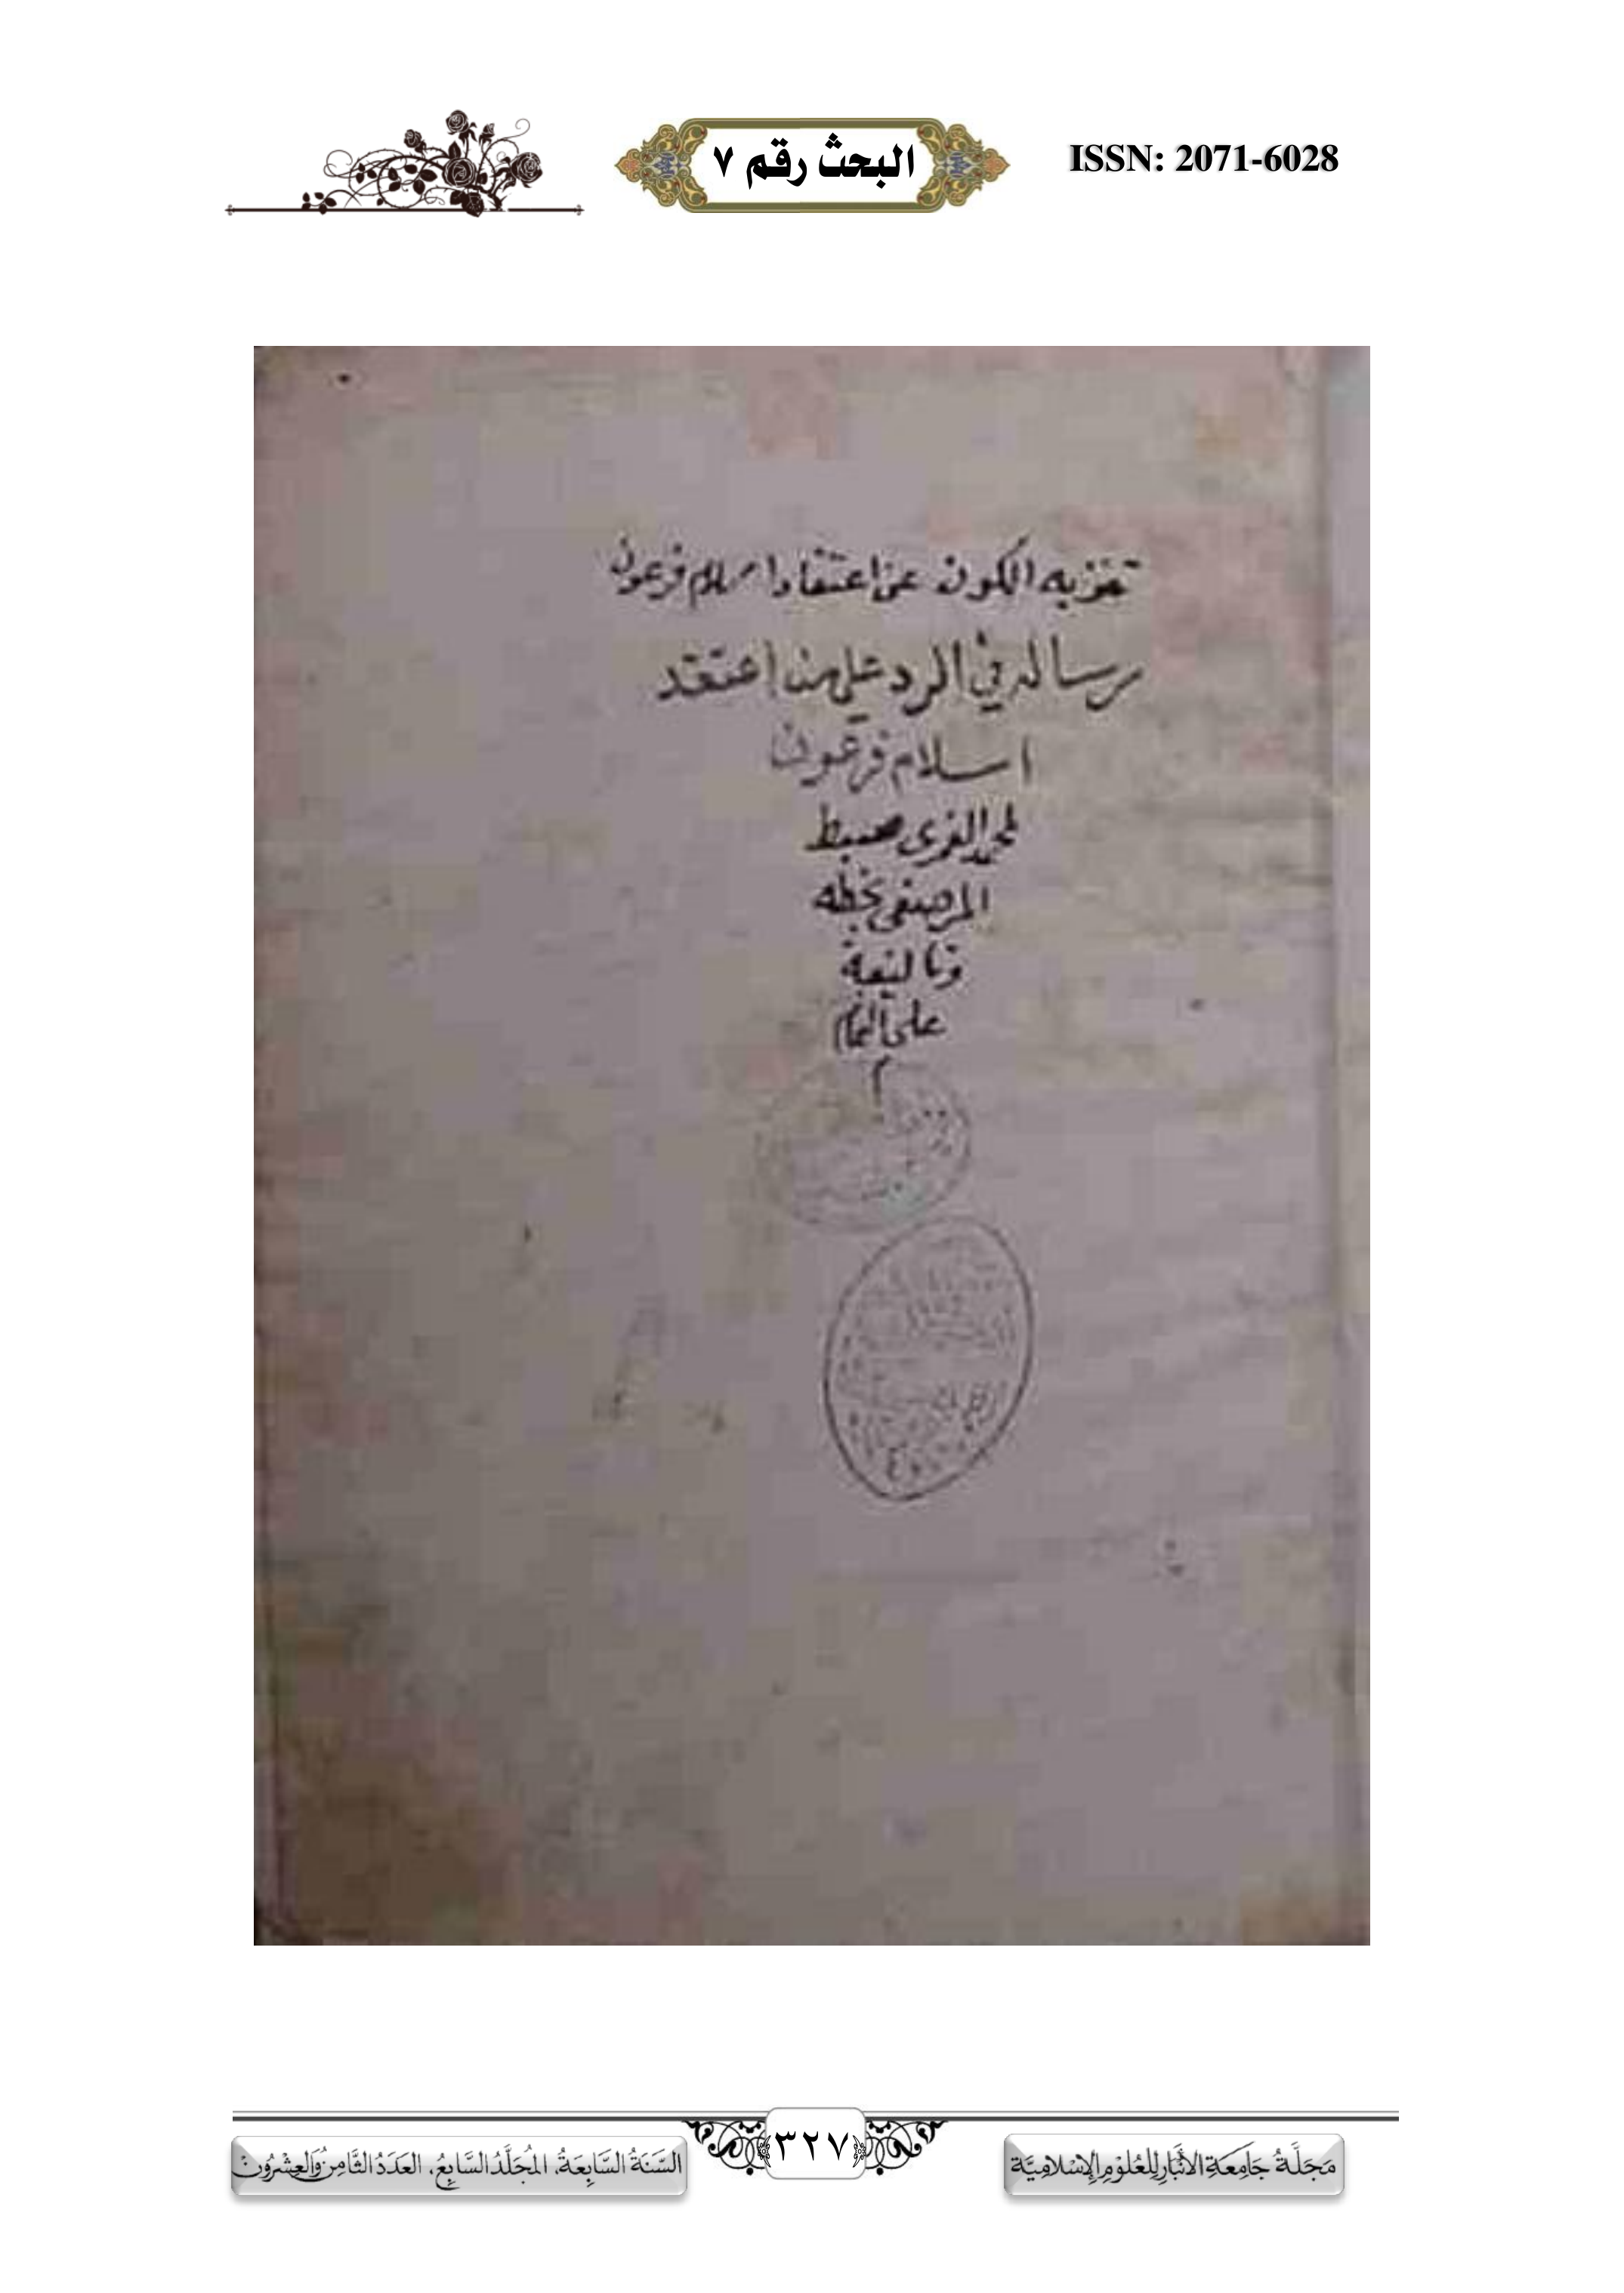 ISSN: 2071-6028
البحث رقم ٧
تنزيه الكون عن اعتقاد اسلام فرعون
رساله في الرد على من اعتقد
اسلام فرعون
لمحمد الغمرى سبط
المرصفى بخطه
وتاليفه
على التمام
م
مَجَلَّةُ جَامِعَةِ الأَنْبَارِ لِلْعُلُومِ الإِسْلَامِيَّة
﴿٣٢٧﴾
السَّنَةُ السَّابِعَةُ، المُجَلَّدُ السَّابِعُ، العَدَدُ الثَّامِنُ وَالعِشْرُونَ